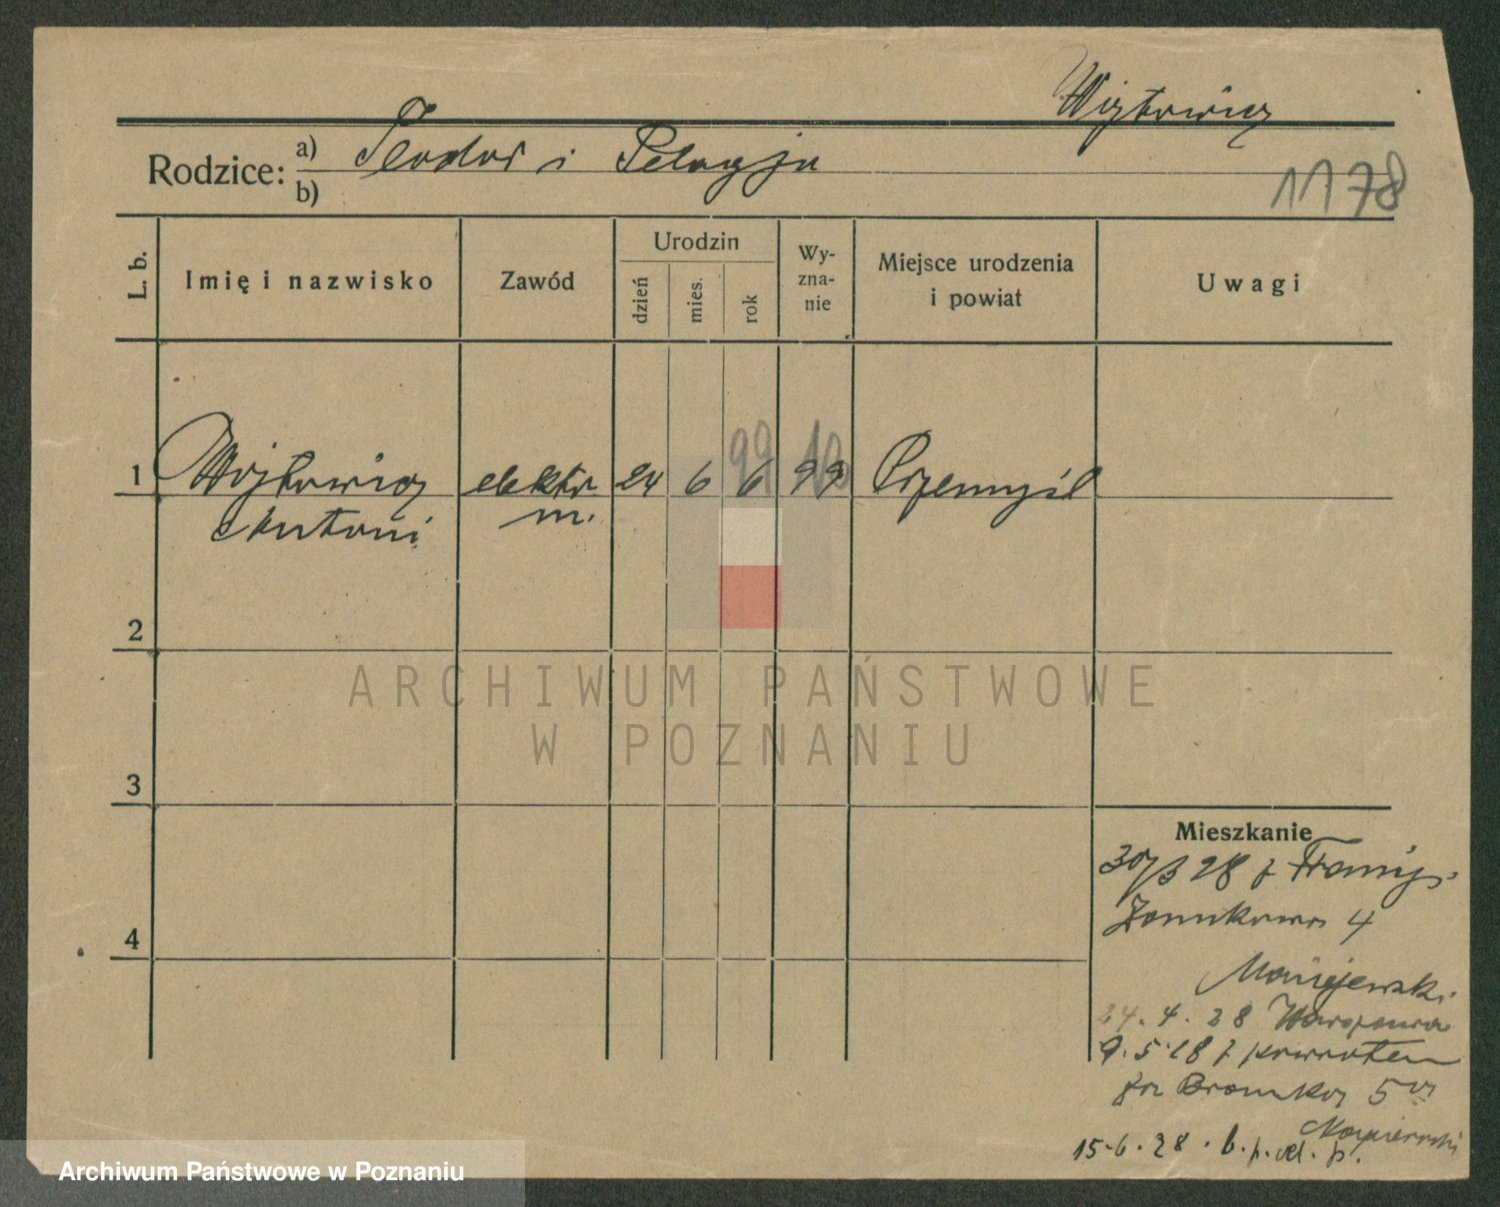 Wojtowicz
Rodzice: a) Teodor i Pelagja
b)
1178
L. b.
Imię i nazwisko
Zawód
Urodzin
dzień
mies.
rok
Wy-
zna-
nie
Miejsce urodzenia
i powiat
Uwagi
99
1 Wojtowicz elektr 24 6 6 99 Przemyśl
Antoni m.
2
ARCHIWUM PAŃSTWOWE
W POZNANIU
3
Mieszkanie
30/3 28 z
4
4
Maciejewski
24. 4. 28 Warszawa
9. 5. 28 z powrotem
5
15. 6. 28
Archiwum Państwowe w Poznaniu